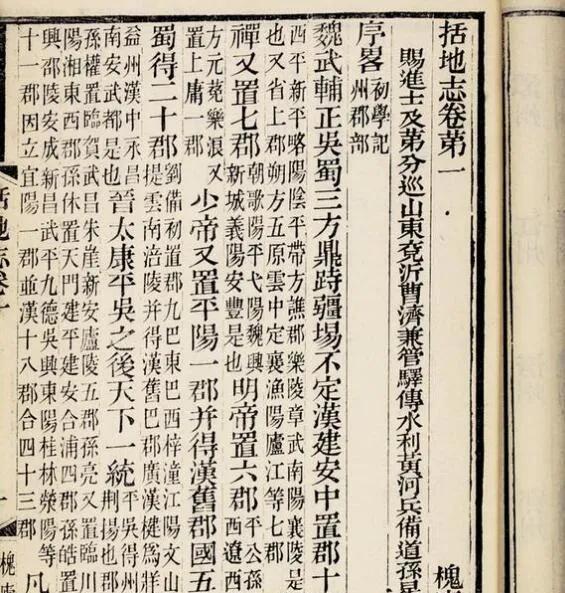 括地志卷第一
槐
賜進士及第分巡山東兗沂曹濟兼管驛傳水利黃河兵備道孫星
序畧
初學記
州郡部
魏武輔正吳蜀三方鼎跱疆場不定漢建安中置郡十
西平新平略陽陰平帶方譙郡樂陵章武南陽襄陵是
也又省上郡朔方五原雲中定襄漁陽廬江等七郡
禪又置七郡
朝歌陽平弋陽魏興
新城義陽安豐是也
明帝置六郡
平公孫
西遼西
方元菟樂浪又
置上庸一郡
少帝又置平陽一郡并得漢舊郡國五
蜀得二十郡
劉備初置郡九巴東巴西梓潼江陽文山
提雲南涪陵并得漢舊巴郡廣漢犍為牂
益州漢中永昌
南安武都是也
晉太康平吳之後天下一統
平吳得州
荆揚也郡
孫權置臨賀武昌朱崖新安廬陵五郡孫亮又置臨川
陽湘東四郡孫休置天門建平建安合浦四郡孫皓置
興邵陵安成新昌武平九德吳興東陽桂林滎陽等
十一郡因立宜陽一郡並漢十八郡合四十三郡
凡
括地志卷一
一
槐